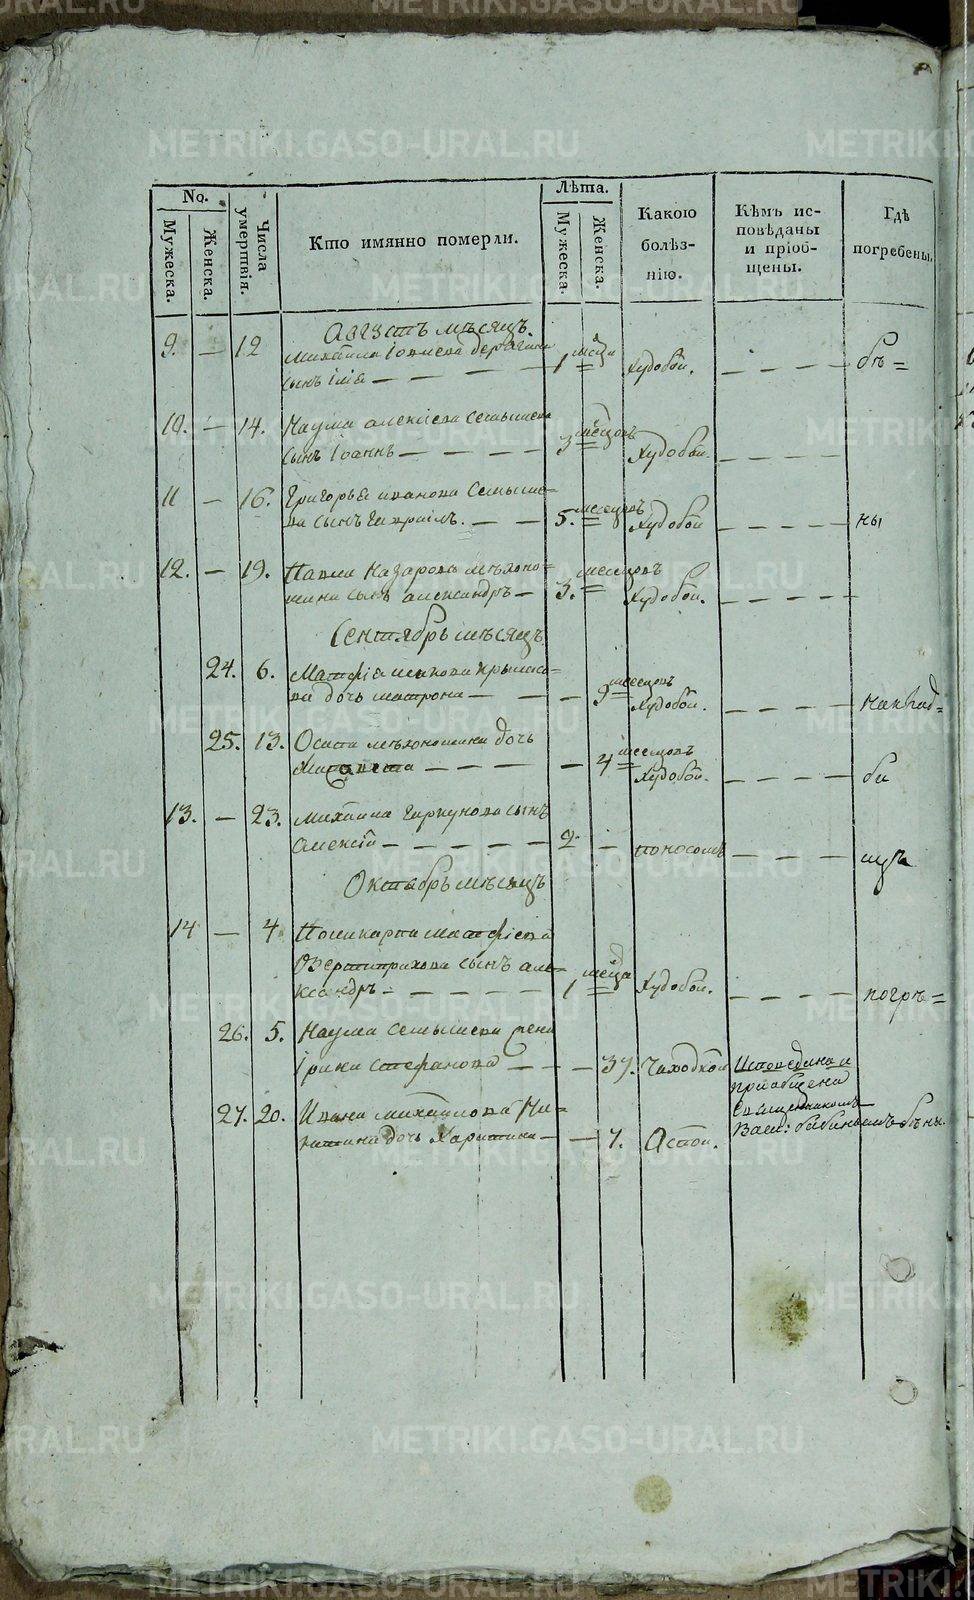 METRIKI.GASO-URAL.RU
No.
Мужеска.
Женска.
Числа умертвія.
Кто имянно померли.
Лѣта.
Мужеска.
Женска.
Какою болѣз-
нію.
Кѣмъ ис-
повѣданы
и пріоб-
щены.
Гдѣ
погребены.
Августъ мѣсяцъ.
9. — 12 Михайла
сынъ Илiя — 1 мсца Худобой. бѣ=
10. — 14. Наума алексiева
сынъ Iоаннъ — 3 мсцовъ Худобой.
11 — 16. Григорья иванова
ва сынъ Гавріилъ. — 5. месецовъ Худобой ны
12. — 19. Павла Назарова мѣхоно=
шина сынъ александръ — 3. месецовъ Худобой.
Сентябрь мѣсяцъ
24. 6. Матфiя
ва дочь матрона — 9 месецовъ Худобой. наклад=
25. 13. Осипа мѣхоношина дочь
— 4 месецовъ Худобой. би
13. — 23. Михайла Гаркунова сынъ
алексiй — 2 — поносомъ щѣ
Октябрь мѣсяцъ
14 — 4 Поликарпа матфiева
сынъ але=
ксандръ — 1 мсца Худобой. погрѣ=
26. 5. Наума жена
Iрина стефанова — 37. Чахоткой Исповедана и
приобщена
священникомъ
27. 20. Ивана михайлова Ни=
китина дочь Харитина — 7. Оспой. бены.